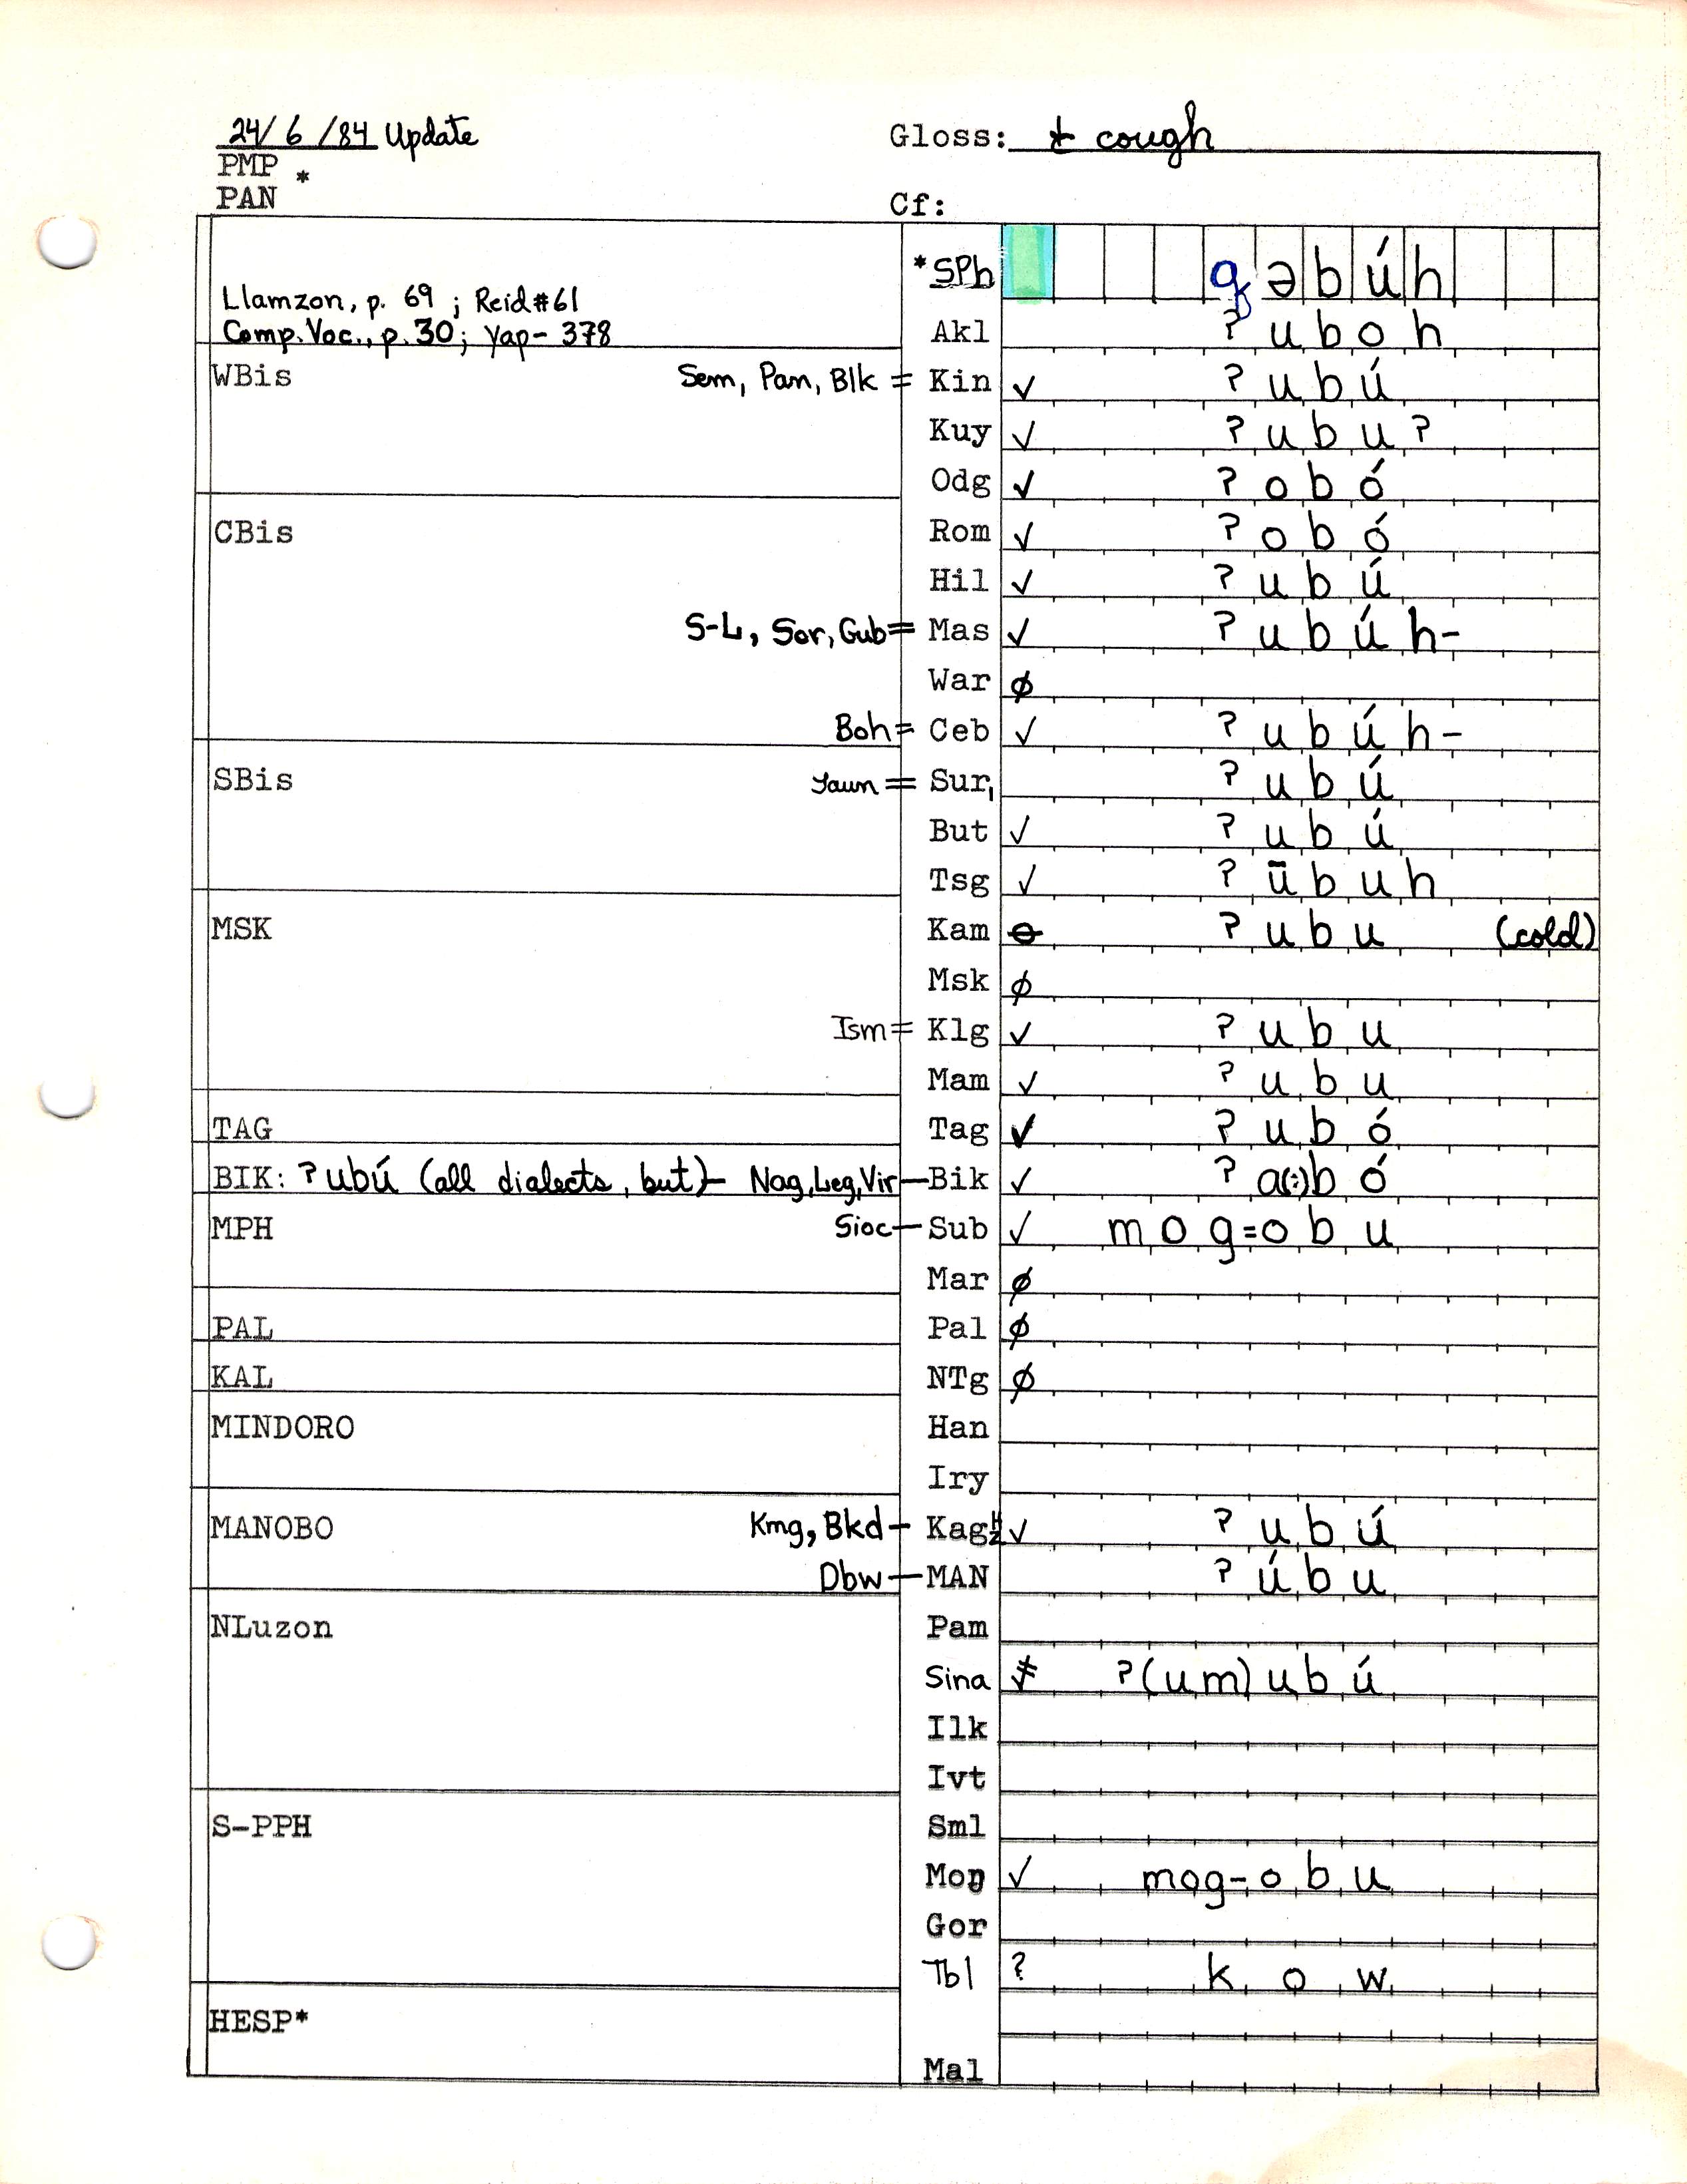 24/ 6 /84 Update Gloss: ± cough
PMP *
PAN Cf:
*SPh qəbúh
Llamzon, p. 69 ; Reid #61
Comp. Voc., p. 30; Yap- 378 Akl ʔuboh
WBis Sem, Pan, Blk = Kin ✓ ʔubú
Kuy ✓ ʔubuʔ
Odg ✓ ʔobó
CBis Rom ✓ ʔobó
Hil ✓ ʔubú
S-L, Sor, Gub = Mas ✓ ʔubúh-
War ∅
Boh = Ceb ✓ ʔubúh-
SBis Jaun = Sur, ʔubú
But ✓ ʔubú
Tsg ✓ ʔūbuh
MSK Kam ⊖ ʔubu (cold)
Msk ∅
Ism = Klg ✓ ʔubu
Mam ✓ ʔubu
TAG Tag ✓ ʔubó
BIK: ʔubú (all dialects, but)— Nag, Leg, Vir — Bik ✓ ʔa(:)bó
MPH Sioc — Sub ✓ mog=obu
Mar ∅
PAL Pal ∅
KAL NTg ∅
MINDORO Han
Iry
MANOBO Kmg, Bkd — Kag ✓ ʔubú
Dbw — MAN ʔúbu
NLuzon Pam
Sina ʔ(um)ubú
Ilk
Ivt
S-PPH Sml
Moŋ ✓ mog-obu
Gor
Tbl ? kow
HESP*
Mal